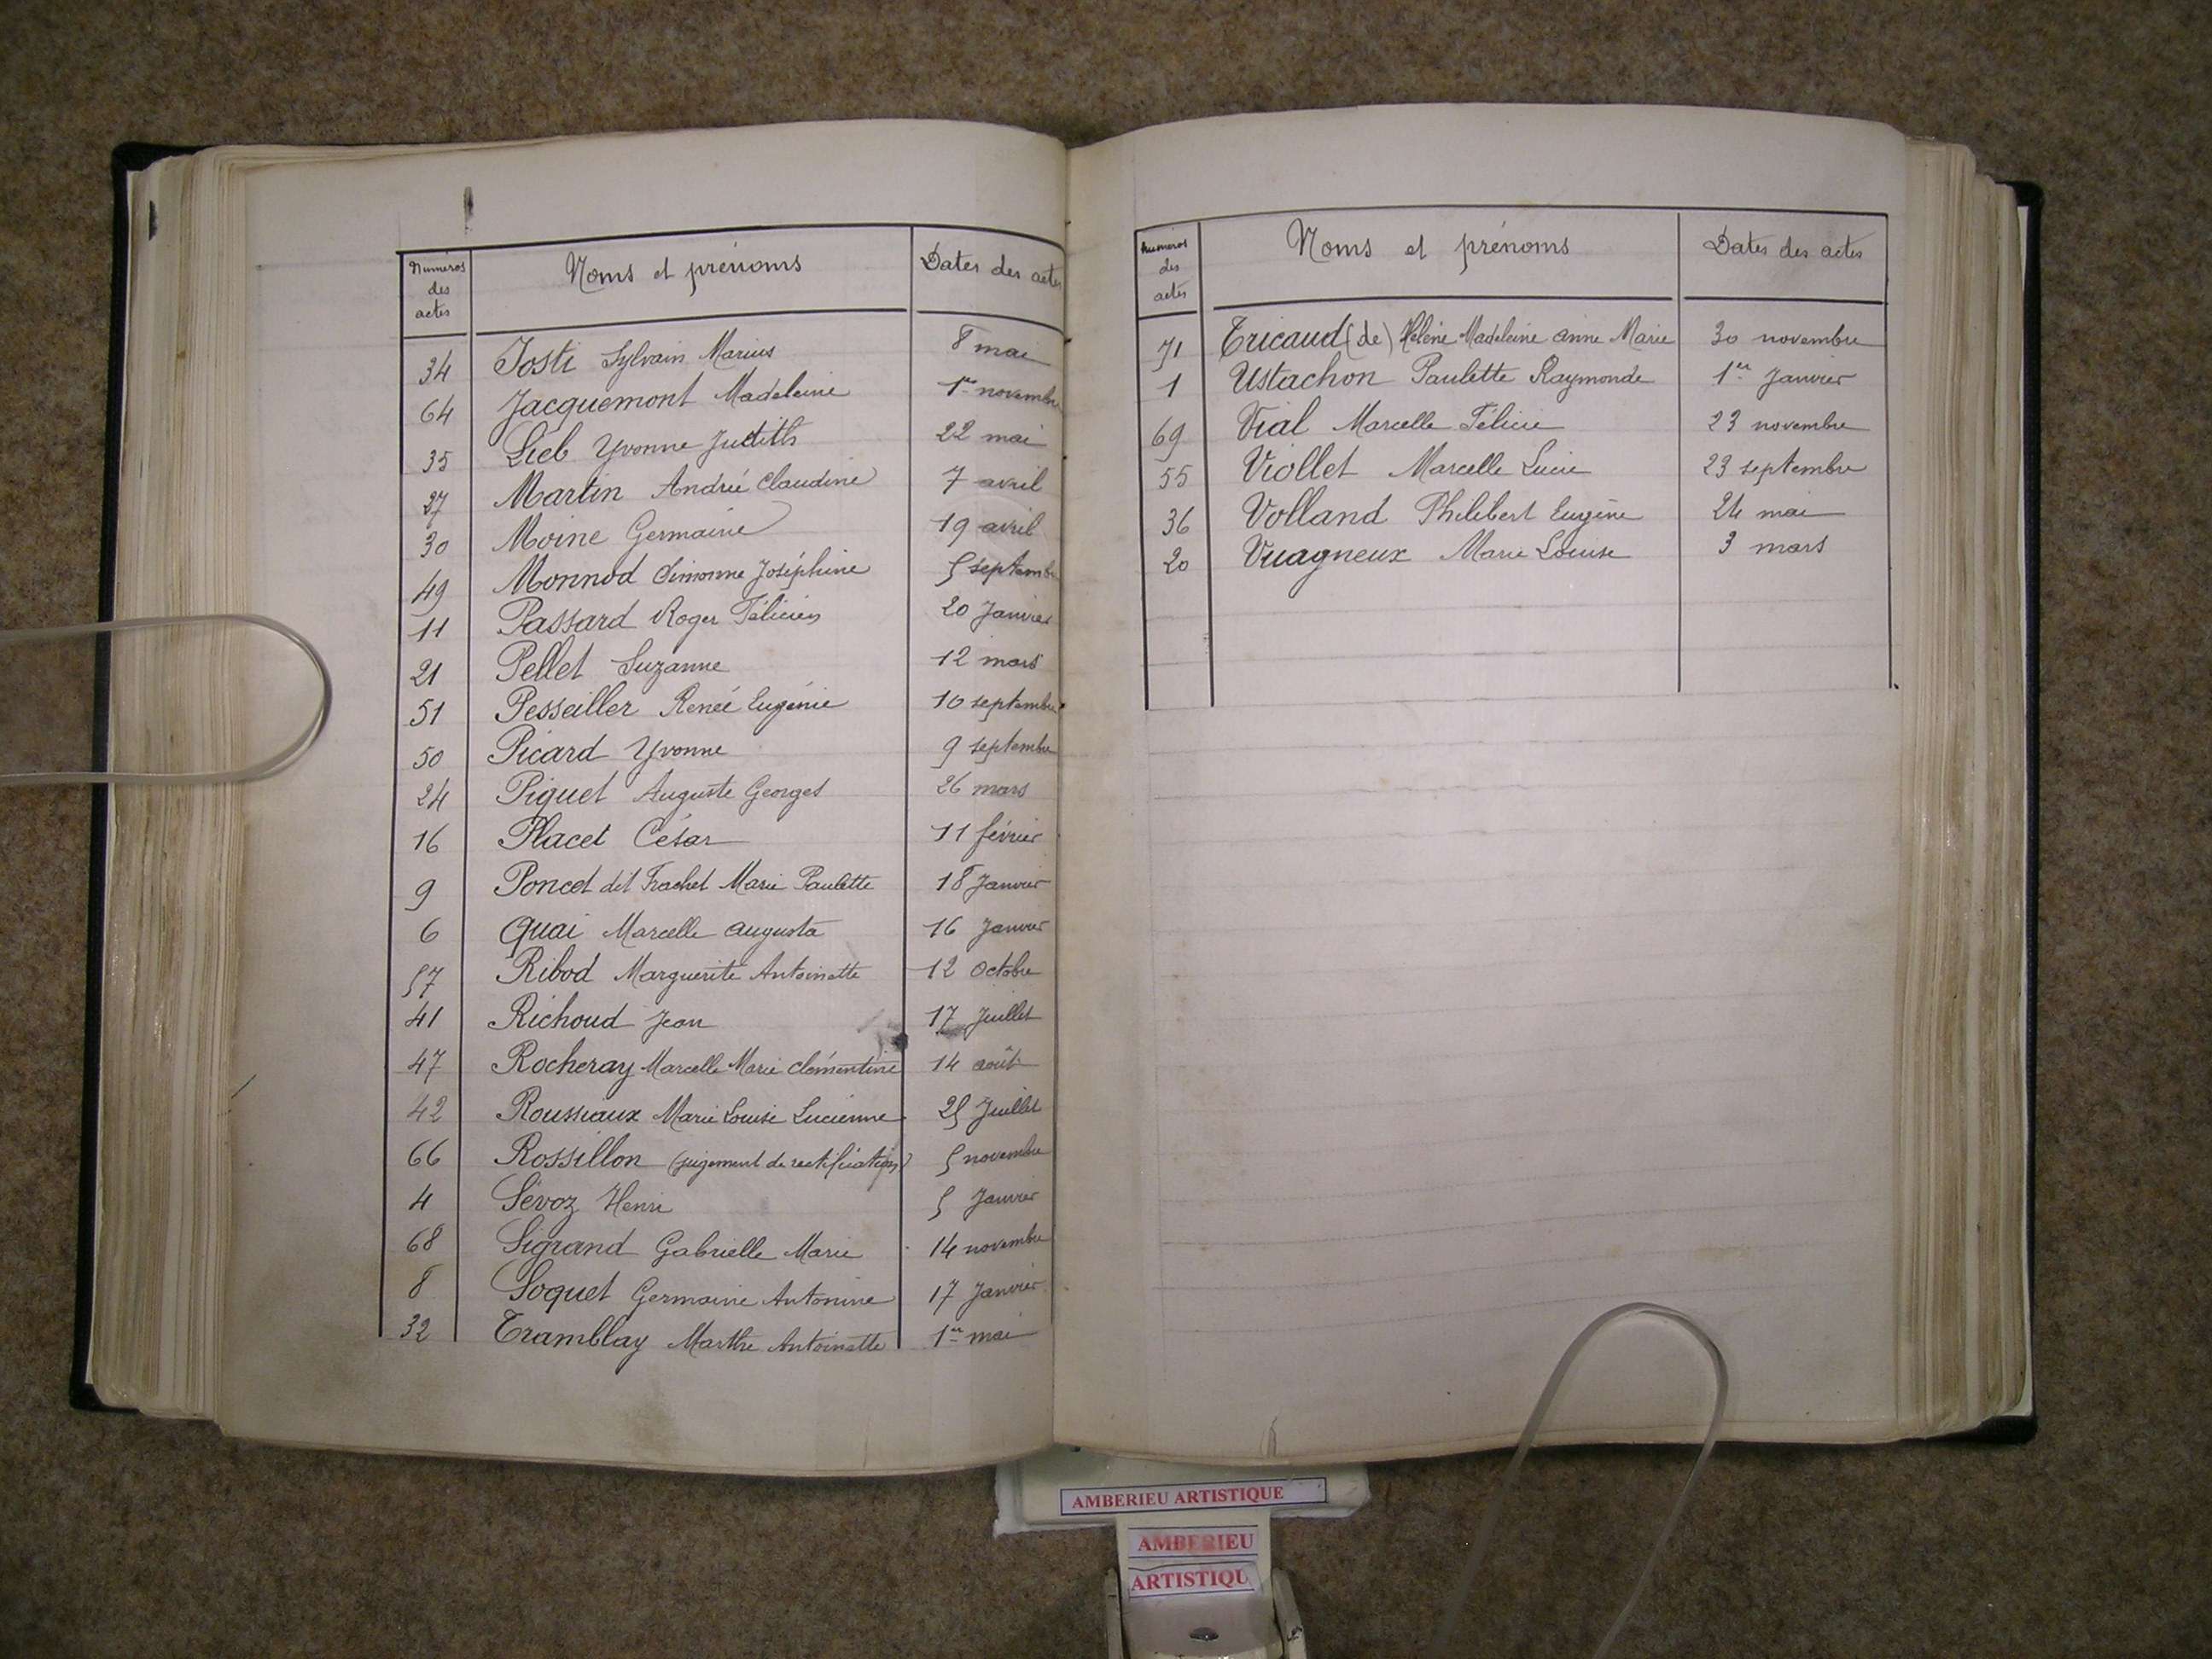 Numéros des actes Noms et prénoms Dates des actes
34 Josti Sylvain Marius 8 mai
64 Jacquemont Madeleine 1er novembre
35 Lieb Yvonne Judith 22 mai
27 Martin André Claudine 7 avril
30 Moine Germaine 19 avril
49 Monnod Simonne Joséphine 5 septembre
11 Passard Roger Félicien 20 Janvier
21 Pellet Suzanne 12 mars
51 Pesseiller Renée Eugénie 10 septembre
50 Picard Yvonne 9 septembre
24 Piguet Auguste Georges 26 mars
16 Placet César 11 février
9 Poncet dit Frachet Marie Paulette 18 Janvier
6 Quai Marcelle Augusta 16 Janvier
57 Ribod Marguerite Antoinette 12 Octobre
41 Richoud Jean 17 Juillet
47 Rocheray Marcelle Marie Clémentine 14 août
42 Rousseaux Marie Louise Lucienne 25 Juillet
66 Rossillon (jugement de rectification) 5 novembre
4 Sévoz Henri 5 Janvier
68 Sigrand Gabrielle Marie 14 novembre
8 Soquet Germaine Antonine 17 Janvier
32 Tramblay Marthe Antoinette 1er mai
Numéros des actes Noms et prénoms Dates des actes
71 Tricaud (de) Hélène Madeleine Anne Marie 30 novembre
1 Ustachon Paulette Raymonde 1er Janvier
69 Vial Marcelle Félicie 23 novembre
55 Viollet Marcelle Lucie 23 septembre
36 Volland Philibert Eugène 24 mai
20 Vuagneux Marie Louise 3 mars
AMBERIEU ARTISTIQUE
AMBERIEU
ARTISTIQU